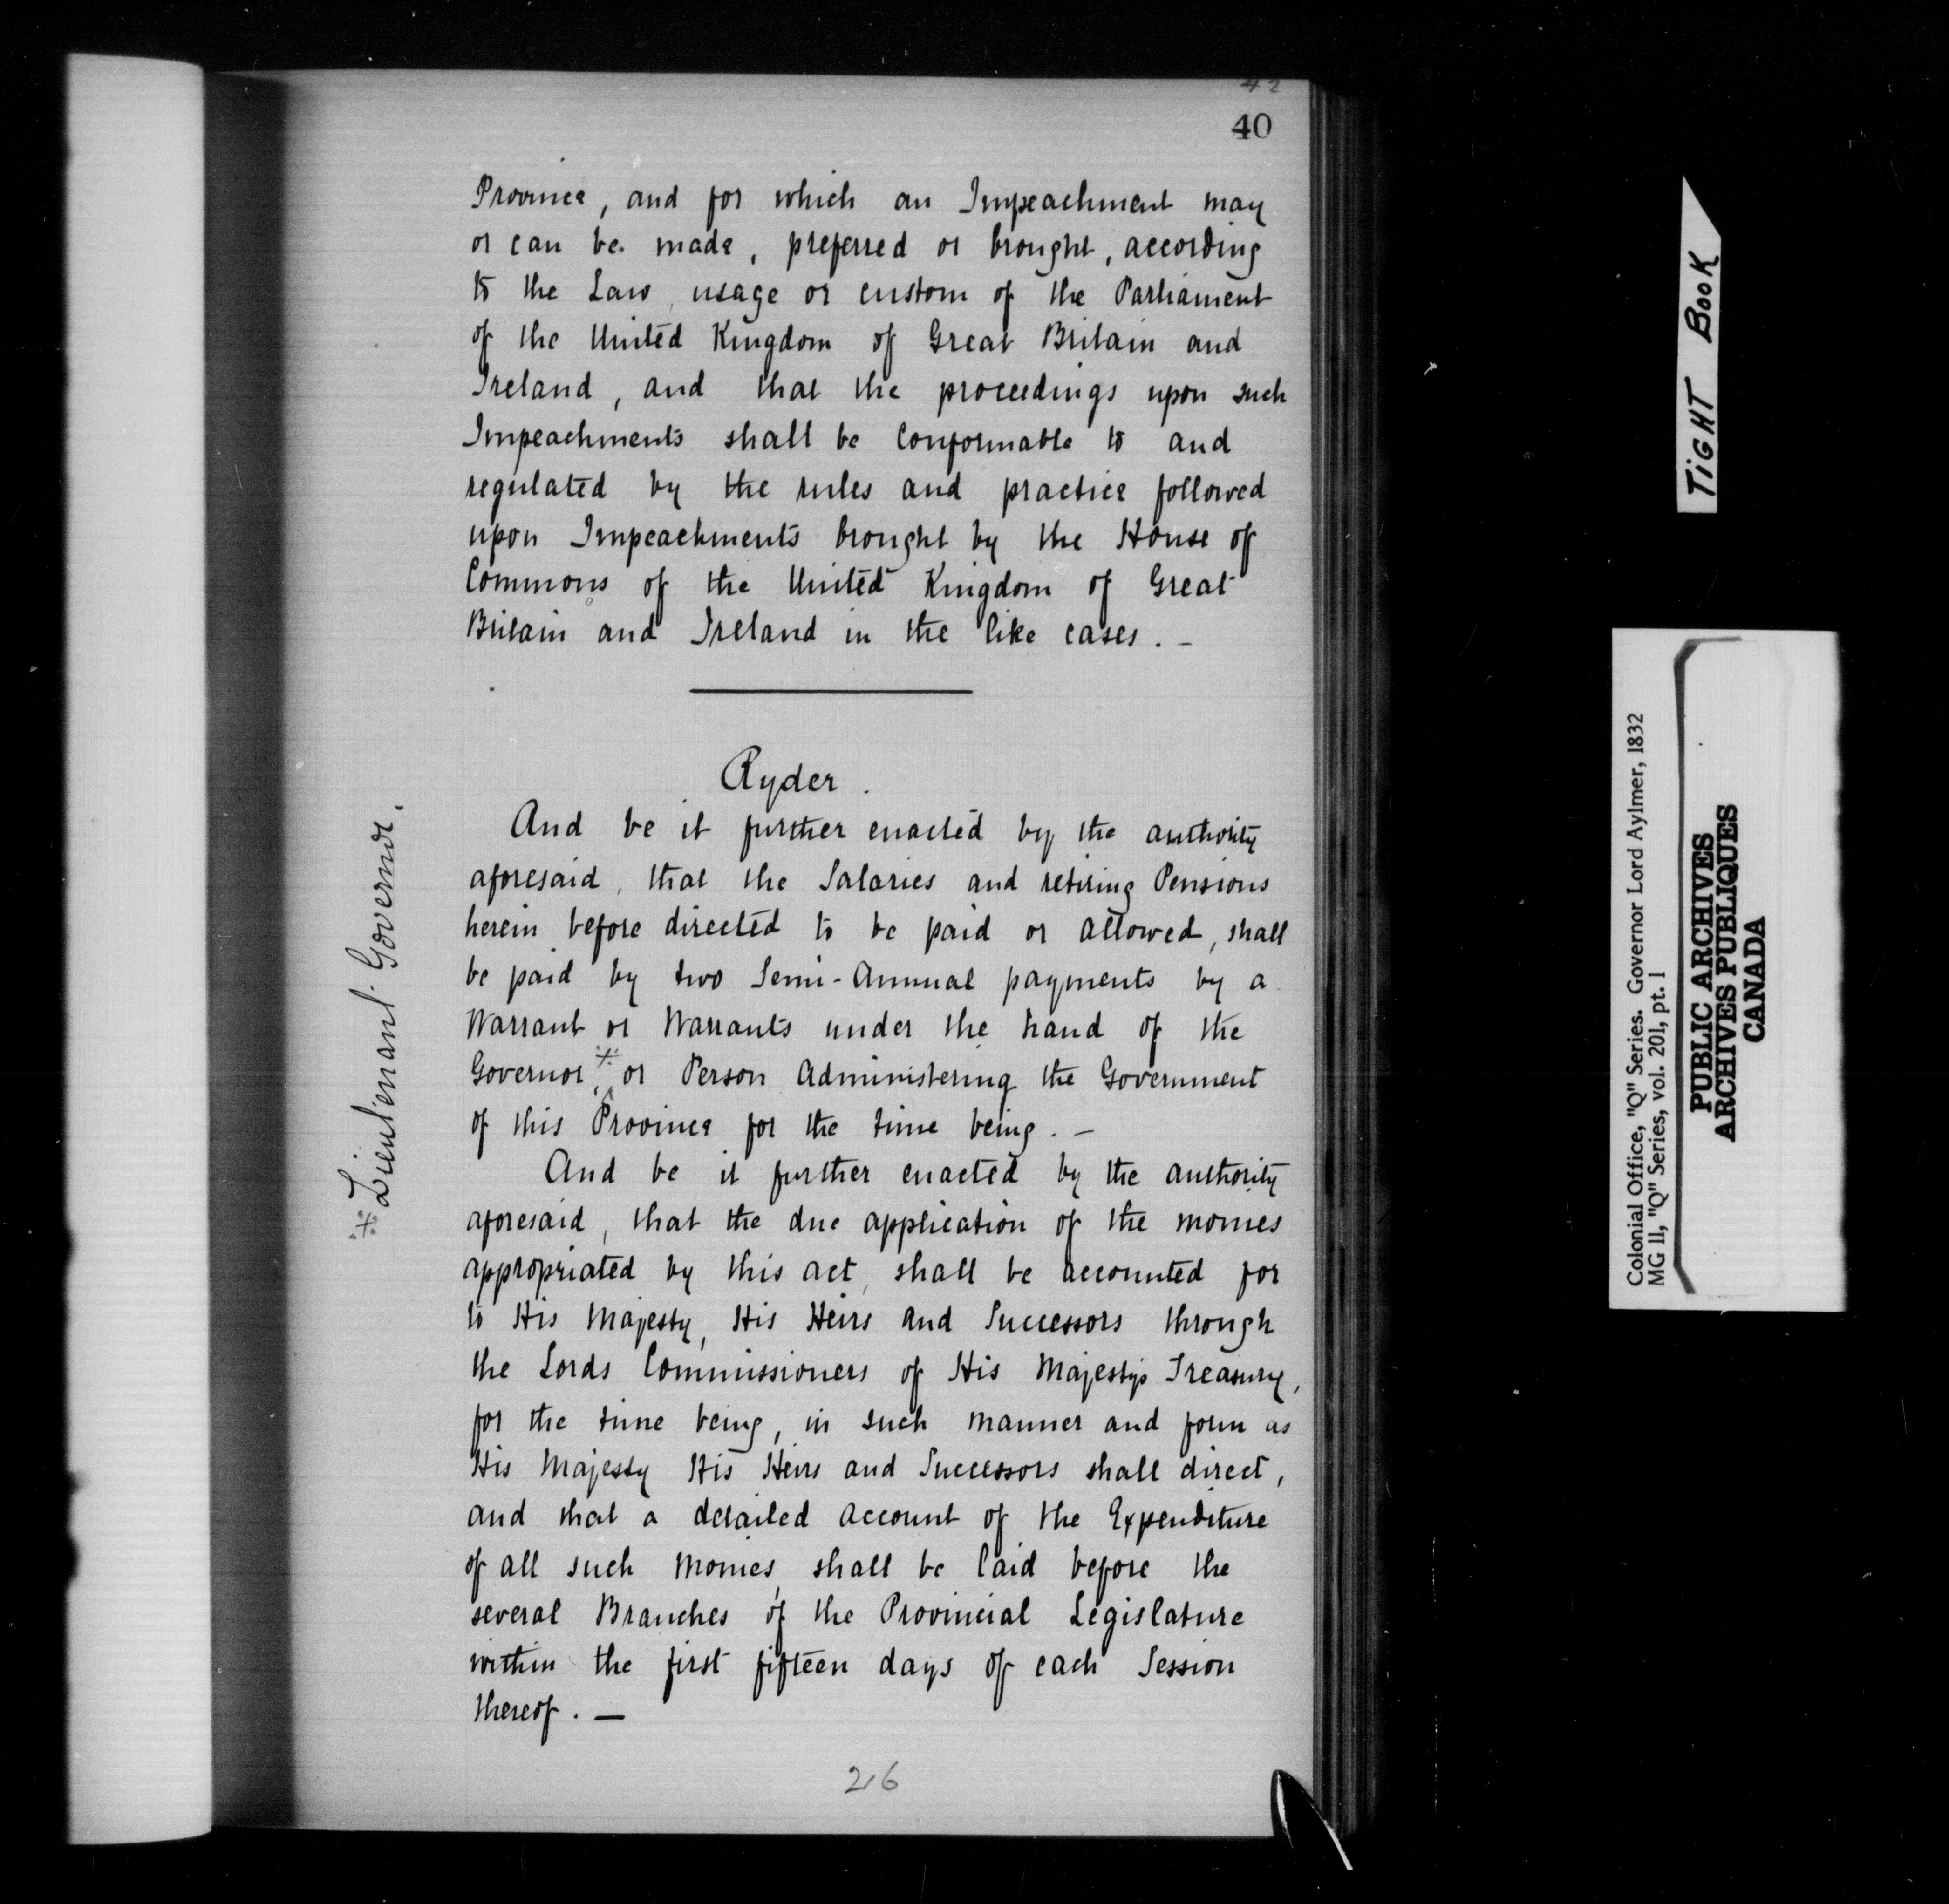 42
40
Province, and for which an Impeachment may
or can be made, preferred or brought, according
to the Law, usage or custom of the Parliament
of the United Kingdom of Great Britain and
Ireland, and that the proceedings upon such
Impeachments shall be Conformable to and
regulated by the rules and practice followed
upon Impeachments brought by the House of
Commons of the United Kingdom of Great
Britain and Ireland in the like cases. -
Ryder.
And be it further enacted by the authority
aforesaid, that the Salaries and retiring Pensions
herein before directed to be paid or allowed, shall
be paid by two Semi-Annual payments by a
Warrant or Warrants under the hand of the
Governor,* or Person Administering the Government
of this Province for the time being. -
And be it further enacted by the authority
aforesaid, that the due application of the monies
appropriated by this act, shall be accounted for
to His Majesty, His Heirs and Successors through
the Lords Commissioners of His Majesty's Treasury,
for the time being, in such manner and form as
His Majesty His Heirs and Successors shall direct,
and that a detailed account of the Expenditure
of all such Monies, shall be laid before the
several Branches of the Provincial Legislature
within the first fifteen days of each Session
thereof. -
* Lieutenant Governor.
216
TIGHT BOOK
Colonial Office, "Q" Series. Governor Lord Aylmer, 1832
MG 11, "Q" Series, vol. 201, pt. 1
PUBLIC ARCHIVES
ARCHIVES PUBLIQUES
CANADA